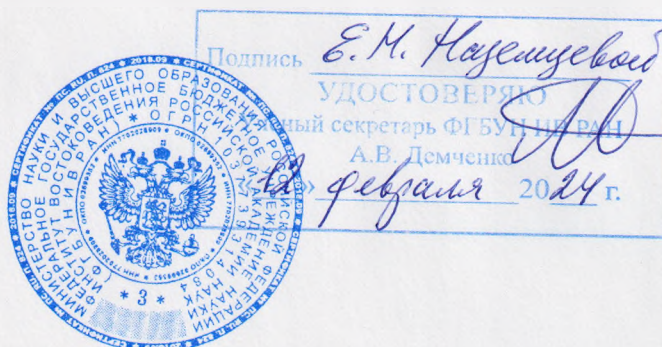 Подпись Е.М. Наземцевой
УДОСТОВЕРЯЮ
ный секретарь ФГБУН ИВ РАН
А.В. Демченко
«12» февраля 2024 г.
МИНИСТЕРСТВО НАУКИ И ВЫСШЕГО ОБРАЗОВАНИЯ РОССИЙСКОЙ ФЕДЕРАЦИИ
ФЕДЕРАЛЬНОЕ ГОСУДАРСТВЕННОЕ БЮДЖЕТНОЕ УЧРЕЖДЕНИЕ НАУКИ
ИНСТИТУТ ВОСТОКОВЕДЕНИЯ РОССИЙСКОЙ АКАДЕМИИ НАУК
(ФГБУН ИВ РАН) * ОГРН 1037739314084
* 3 *